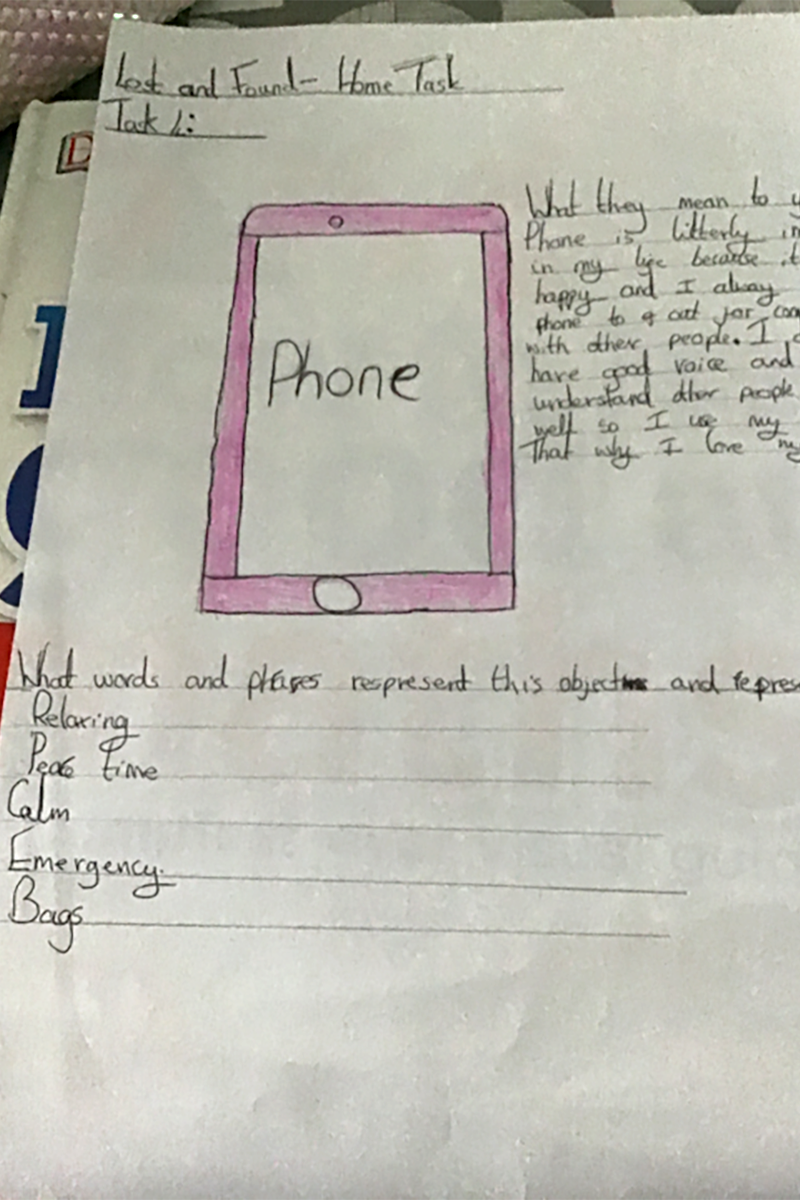 Lost and Found - Home Task
Task 1:
D
Phone
What they mean to
Phone is litterly
in my life because
happy and I alway
phone to out for
with other people. I
have good voice and
understand other people
well so I use my
That why I love
What words and phases respresent this object and
Relaxing
Peac time
Calm
Emergency.
Bags